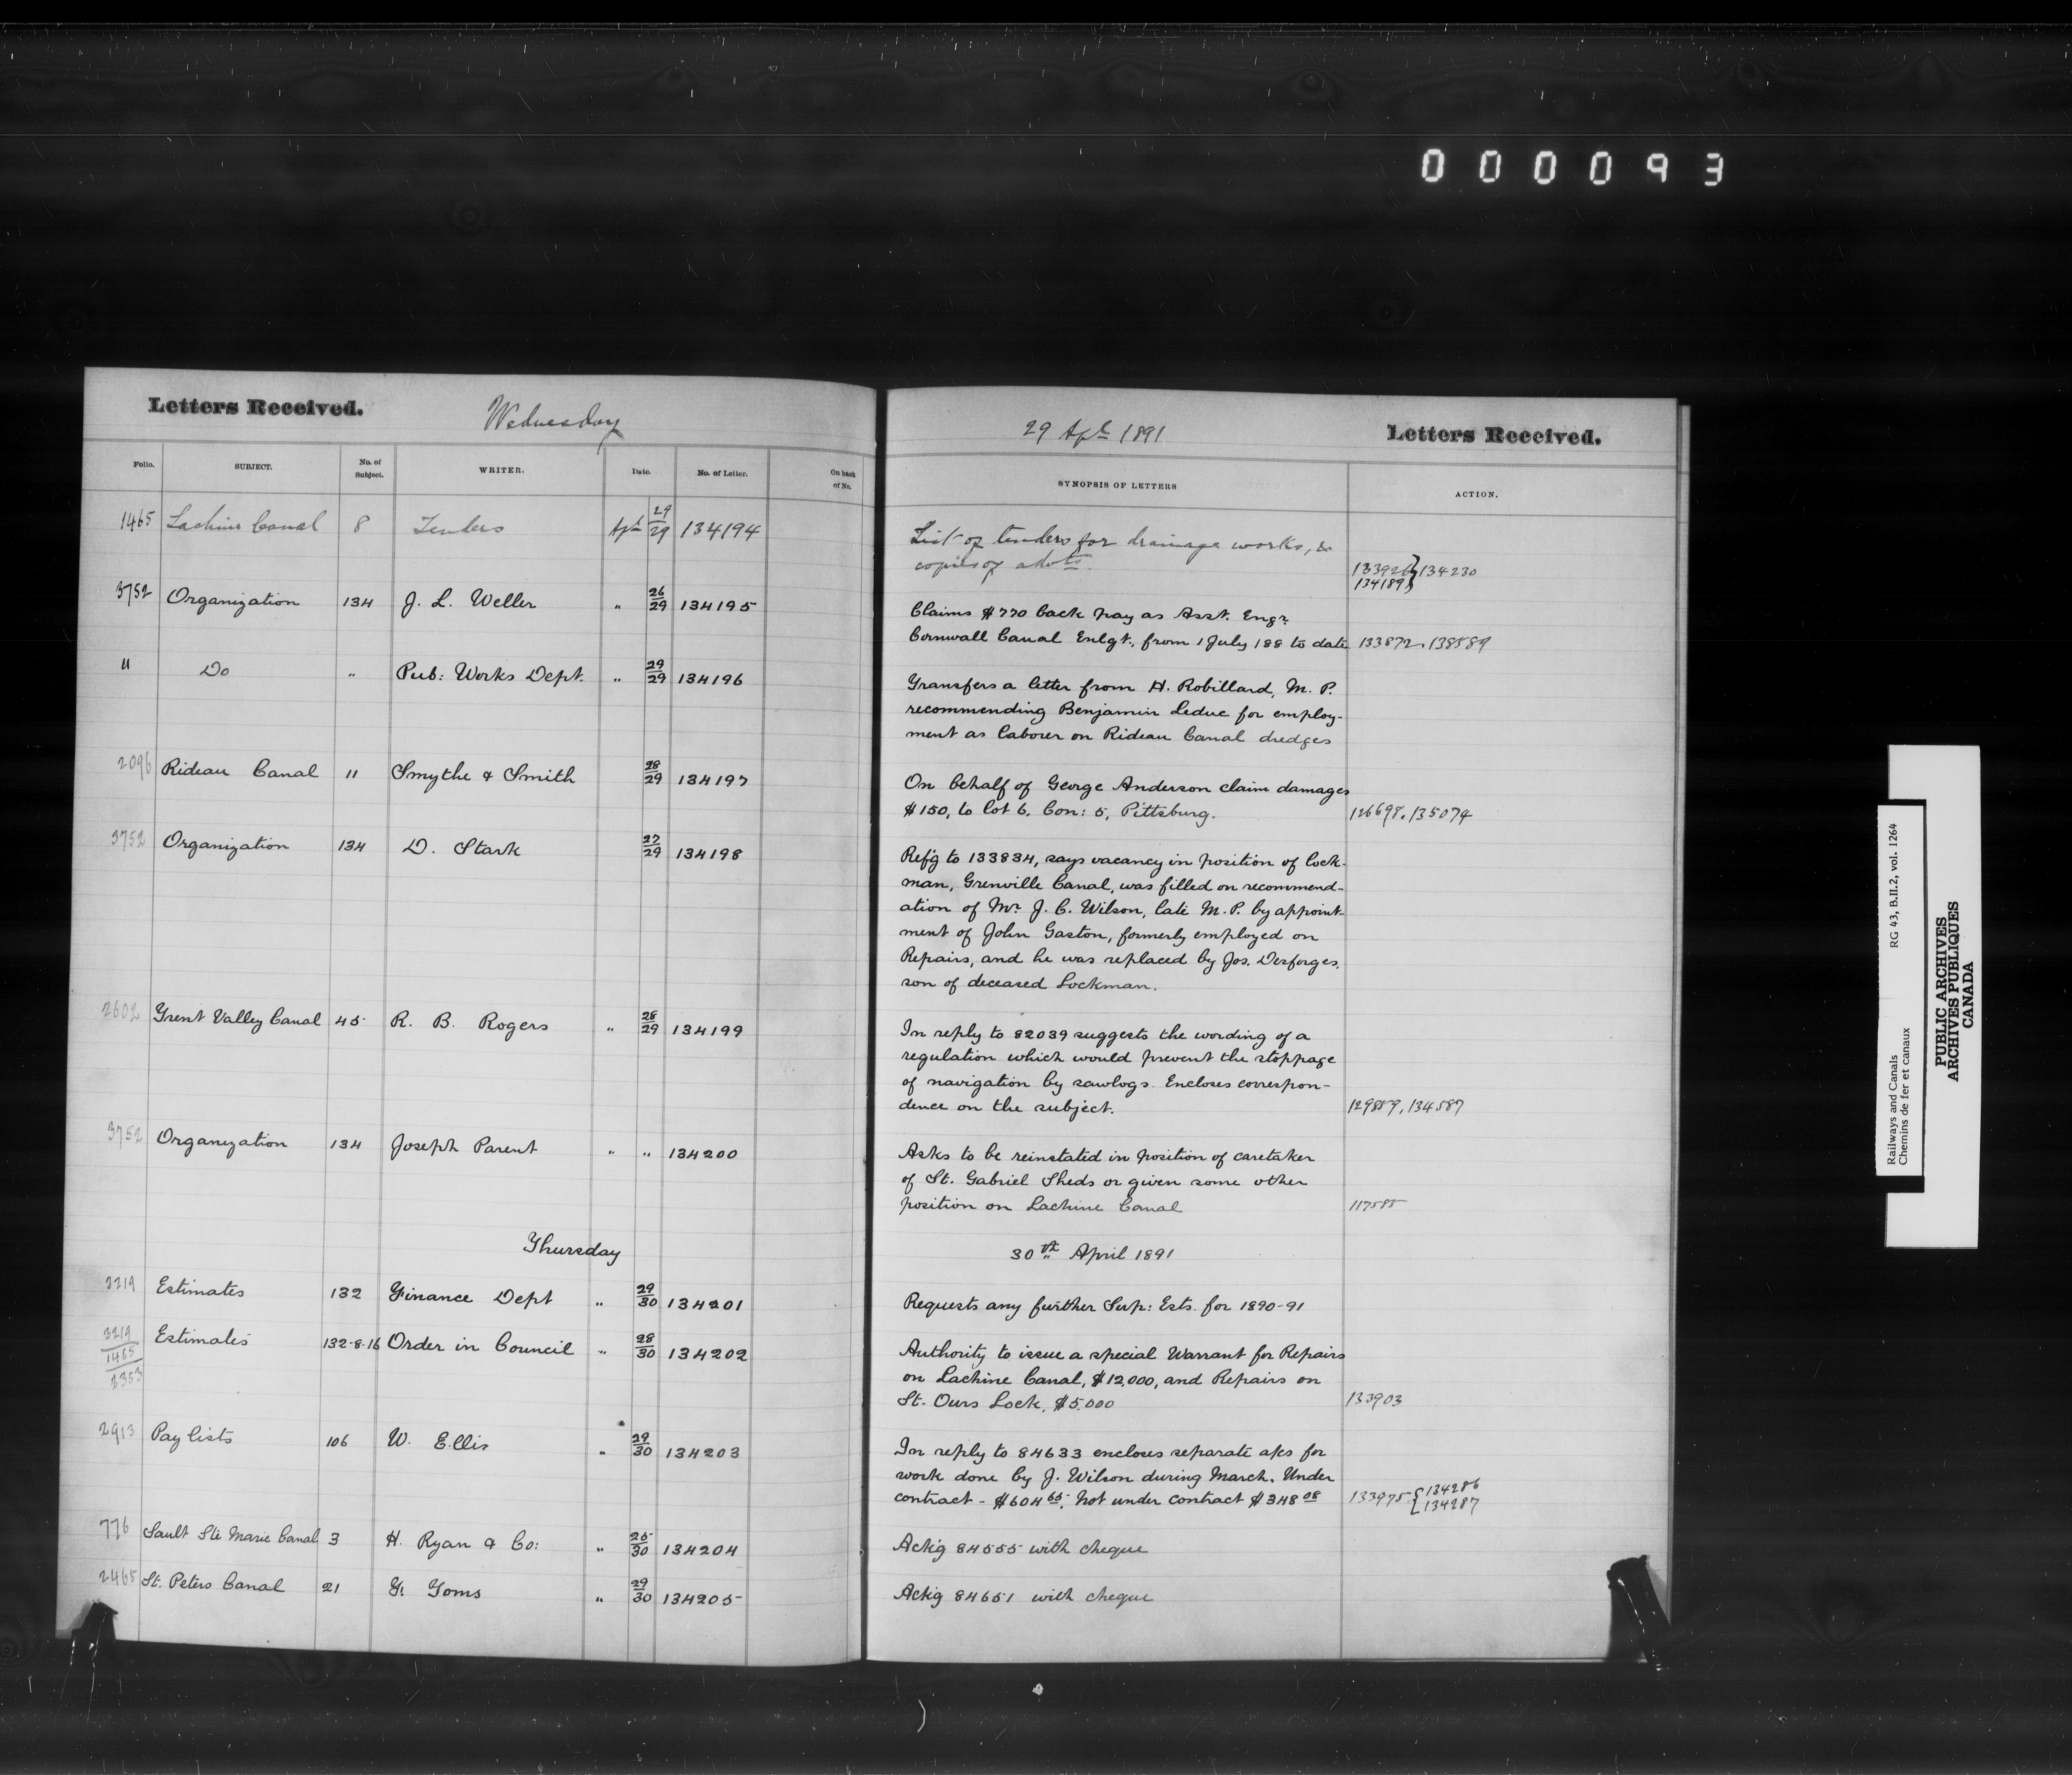 000093
Letters Received.
Wednesday
29 Apl 1891
Letters Received.
Folio. SUBJECT. No. of Subject. WRITER. Date. No. of Letter. On back of No. SYNOPSIS OF LETTERS ACTION.
1465 Lachine Canal 8 Tenders Apl 29/29 134194
List of tenders for drainage works, &
copies of
133921 } 134230
134189 }
3752 Organization 134 J. L. Weller " 26/29 134195
Claims $770 back pay as Asst. Engr.
Cornwall Canal Enlgt., from 1 July 188 to date 133872. 138589
" Do " Pub: Works Dept. " 29/29 134196
Transfers a letter from H. Robillard, M. P.
recommending Benjamin Leduc for employ-
ment as laborer on Rideau Canal dredges
2096 Rideau Canal 11 Smythe & Smith 28/29 134197
On behalf of George Anderson claim damages
$150, to lot 6, Con: 5, Pittsburg. 126698. 135074
3752 Organization 134 D. Stark 27/29 134198
Refg to 133834, says vacancy in position of lock-
man, Grenville Canal, was filled on recommend-
ation of Mr. J. C. Wilson, late M. P. by appoint-
ment of John Gaston, formerly employed on
Repairs, and he was replaced by Jos. Desforges,
son of deceased Lockman.
2602 Trent Valley Canal 45 R. B. Rogers " 28/29 134199
In reply to 82039 suggests the wording of a
regulation which would prevent the stoppage
of navigation by sawlogs. Encloses correspon-
dence on the subject. 129859, 134587
3752 Organization 134 Joseph Parent " " 134200
Asks to be reinstated in position of caretaker
of St. Gabriel Sheds or given some other
position on Lachine Canal 117585
Thursday
30th April 1891
3219 Estimates 132 Finance Dept " 29/30 134201
Requests any further Sup: Ests. for 1890-91
3219/1465/2353 Estimates 132-8-16 Order in Council " 28/30 134202
Authority to issue a special Warrant for Repairs
on Lachine Canal, $12,000, and Repairs on
St. Ours Lock, $5,000 133903
2913 Pay lists 106 W. Ellis " 29/30 134203
In reply to 84633 encloses separate a/cs for
work done by J. Wilson during March. Under
contract - $604.65; Not under contract $348.08 133975 { 134286
134287
776 Sault Ste Marie Canal 3 H. Ryan & Co: " 25/30 134204
Ackg 84555 with cheque
2465 St. Peters Canal 21 G. Toms " 29/30 134205
Ackg 84651 with cheque
Railways and Canals RG 43, B.II.2, vol. 1264
Chemins de fer et canaux
PUBLIC ARCHIVES
ARCHIVES PUBLIQUES
CANADA